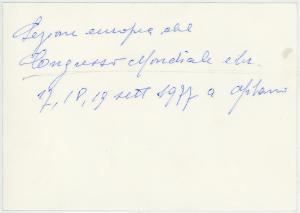 Sezione europea del
Congresso Mondiale
17, 18, 19 sett 1977 a